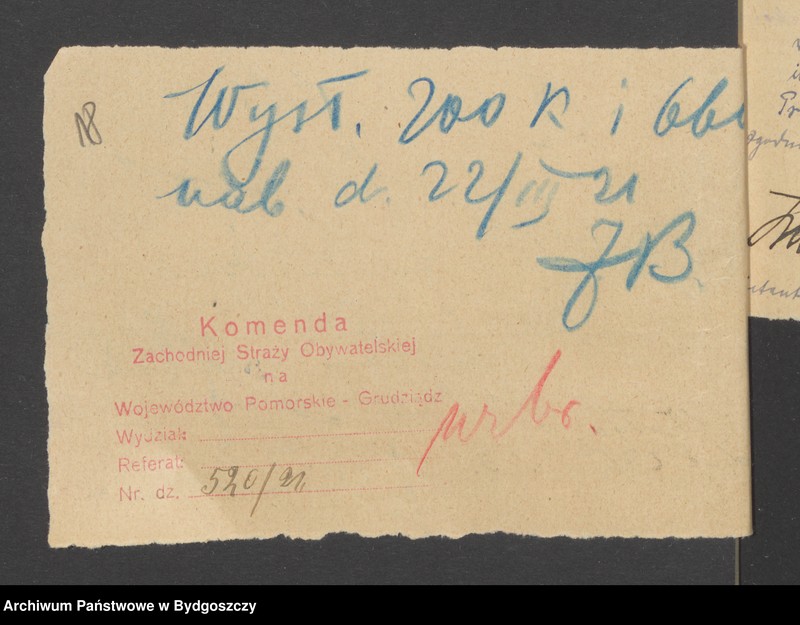 18
Wyst. 200 K i
nab. d. 22/III 21
JB.
Komenda
Zachodniej Straży Obywatelskiej
na
Województwo Pomorskie - Grudziądz
Wydział:
Referat:
Nr. dz. 520/21
Archiwum Państwowe w Bydgoszczy